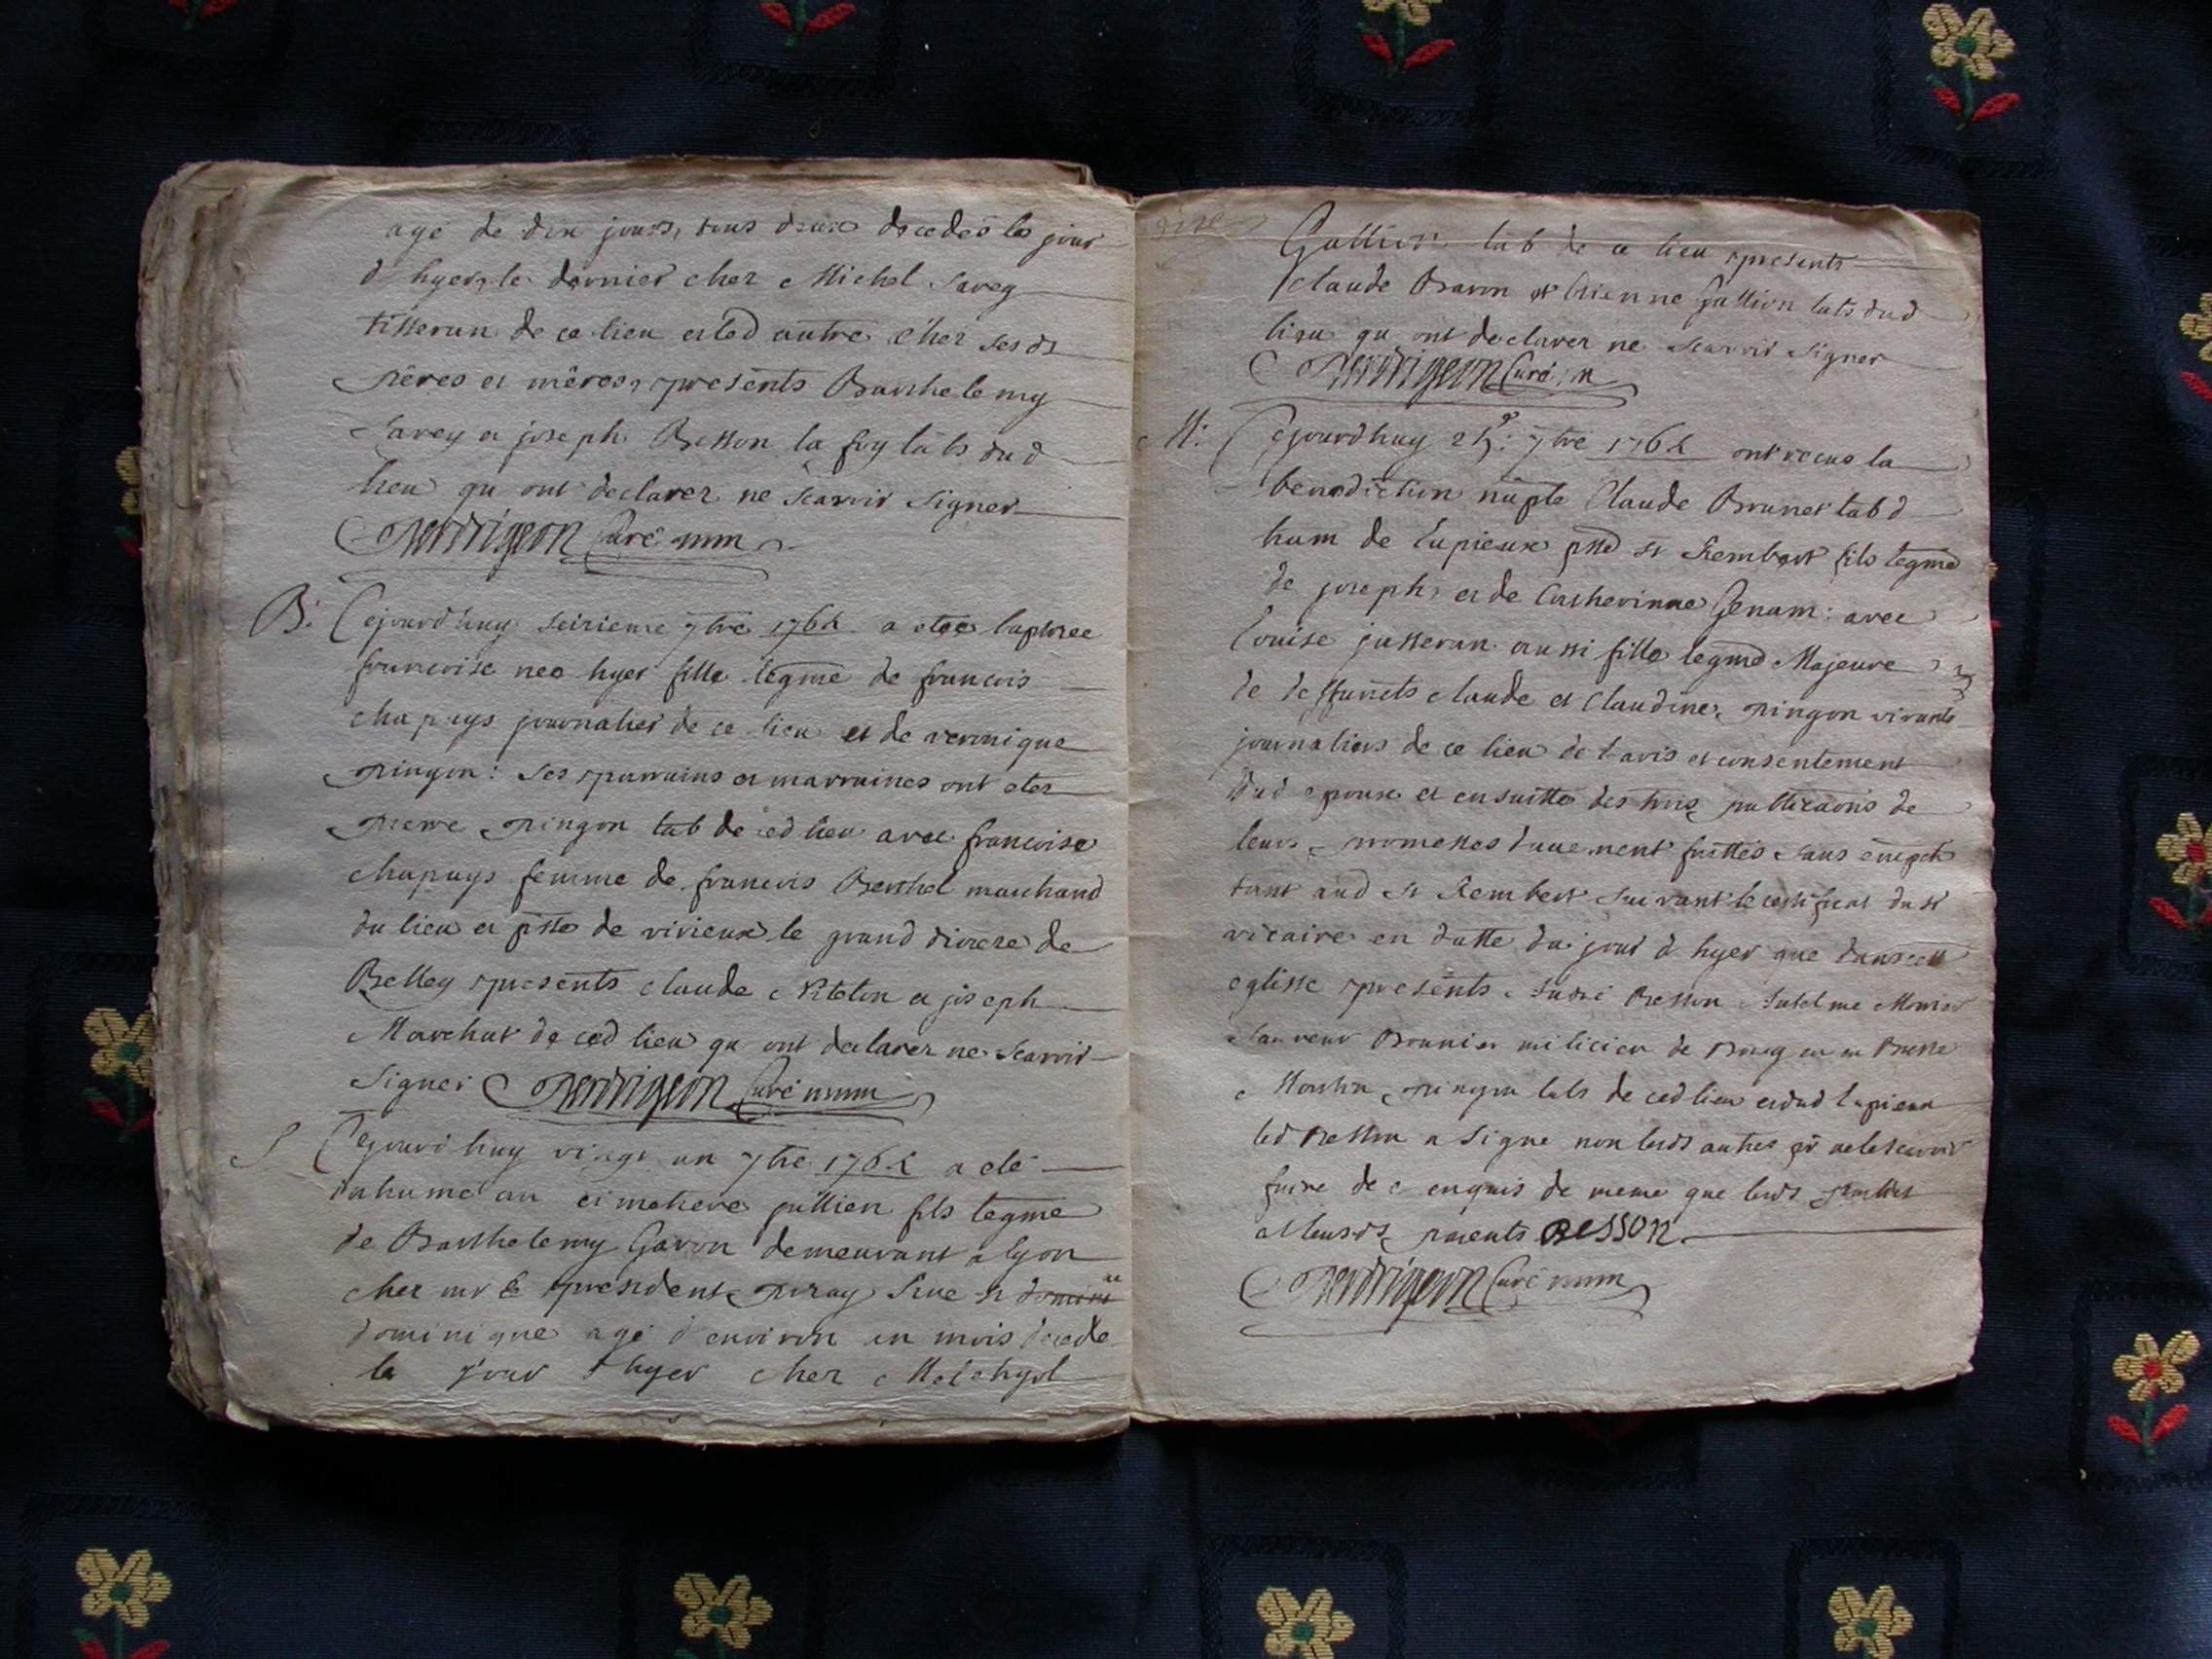 agé de dix jours, tous deux decedés le jour
d'hyer, le dernier chez Michel Savey
tisseran de ce lieu et led autre chez sesds
pères et mères, presents Barthelemy
Savey et joseph Besson la foy labs dud
lieu qu ont declarer ne scavoir signer
Perdrigeon Curé
B: Cejourdhuy seizieme 7bre 1764 a etee baptisee
francoise nee hyer fille legme de francois
chapuys journalier de ce lieu et de veronique
pingon: ses parrains et marraines ont eter
pierre pingon lab de ced lieu avec francoise
chapuys femme de francois Berthel marchand
du lieu et psse de virieux le grand diocese de
Belley presents claude et joseph
Marchat de ced lieu qu ont declarer ne scavoir
signer Perdrigeon Curé
S Cejourdhuy vingt un 7bre 1764 a eté
inhumé au cimetiere jullien fils legme
de Barthelemy Gavon demeurant a lyon
chez mr le president rue st
dominique agé d'environ un mois decede
le jour d'hyer chez
Gallion lab de ce lieu presents
Claude Baron et Etienne Gallion labs dud
lieu qu ont declarer ne scavoir signer
Perdrigeon Curé
M: Cejourdhuy 25: 7bre 1764 ont recus la
benediction nuple Claude Brunet lab d
ham de Lupieux psse st Rembert fils legme
de joseph et de Catherinne Genam: avec
Louise jusseran aussi fille legme Majeure
de deffuncts claude et Claudine pingon vivants
journaliers de ce lieu de l'avis et consentement
dud epoux et ensuitte des trois publicaons de
leurs promesses duuement faittes sans empeht
tant aud st Rembert suivant le certificat du sr
vicaire en datte du jour d'hyer que dans cette
eglisse presents Besson
Bonnier milicien de Bourg en Bresse
pingon labs de ced lieu et dud Lupieux
led Besson a signe non lesds autres pr ne le scavoir
faire de ce enquis de meme que lesds
et leursds parents Besson
Perdrigeon Curé